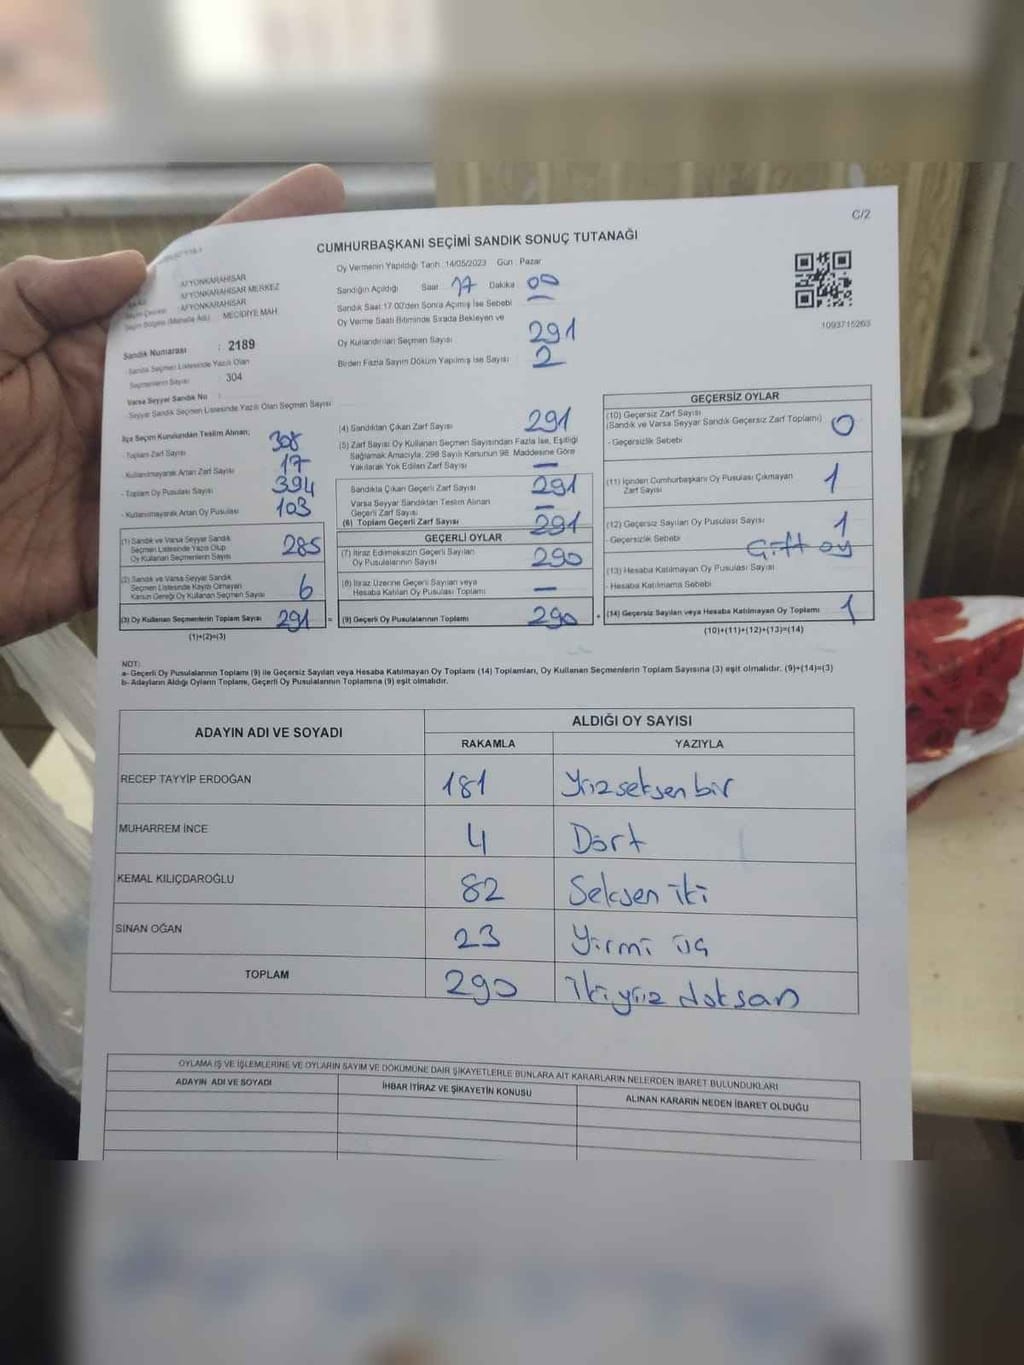 C/2
CUMHURBAŞKANI SEÇİMİ SANDIK SONUÇ TUTANAĞI
AFYONKARAHİSAR
AFYONKARAHİSAR MERKEZ
AFYONKARAHİSAR
MECİDİYE MAH.
Sandık Numarası : 2189
Sandık Seçmen Listesinde Yazılı Olan
Seçmenlerin Sayısı : 304
Varsa Seyyar Sandık No :
- Seyyar Sandık Seçmen Listesinde Yazılı Olan Seçmen Sayısı
Oy Vermenin Yapıldığı Tarih :14/05/2023 Gün : Pazar
Sandığın Açıldığı Saat 17 Dakika 00
Sandık Saat 17.00'den Sonra Açılmış İse Sebebi —
Oy Verme Saati Bitiminde Sırada Bekleyen ve
Oy Kullandırılan Seçmen Sayısı 291
Birden Fazla Sayım Döküm Yapılmış İse Sayısı : 2
1093715263
İlçe Seçim Kurulundan Teslim Alınan;
- Toplam Zarf Sayısı 308
- Kullanılmayarak Artan Zarf Sayısı 17
- Toplam Oy Pusulası Sayısı 394
- Kullanılmayarak Artan Oy Pusulası 103
(1) Sandık ve Varsa Seyyar Sandık
Seçmen Listesinde Yazılı Olup
Oy Kullanan Seçmenlerin Sayısı 285
(2) Sandık ve Varsa Seyyar Sandık
Seçmen Listesinde Kayıtlı Olmayan
Kanun Gereği Oy Kullanan Seçmen Sayısı 6
(3) Oy Kullanan Seçmenlerin Toplam Sayısı 291 =
(1)+(2)=(3)
(4) Sandıktan Çıkan Zarf Sayısı 291
(5) Zarf Sayısı Oy Kullanan Seçmen Sayısından Fazla İse, Eşitliği
Sağlamak Amacıyla, 298 Sayılı Kanunun 98. Maddesine Göre
Yakılarak Yok Edilen Zarf Sayısı —
Sandıkta Çıkan Geçerli Zarf Sayısı 291
Varsa Seyyar Sandıktan Teslim Alınan
Geçerli Zarf Sayısı —
(6) Toplam Geçerli Zarf Sayısı 291
GEÇERLİ OYLAR
(7) İtiraz Edilmeksizin Geçerli Sayılan
Oy Pusulalarının Sayısı 290
(8) İtiraz Üzerine Geçerli Sayılan veya
Hesaba Katılan Oy Pusulası Toplamı —
(9) Geçerli Oy Pusulalarının Toplamı 290 +
GEÇERSİZ OYLAR
(10) Geçersiz Zarf Sayısı
(Sandık ve Varsa Seyyar Sandık Geçersiz Zarf Toplamı) 0
- Geçersizlik Sebebi
(11) İçinden Cumhurbaşkanı Oy Pusulası Çıkmayan
Zarf Sayısı 1
(12) Geçersiz Sayılan Oy Pusulası Sayısı 1
- Geçersizlik Sebebi Çift oy
(13) Hesaba Katılmayan Oy Pusulası Sayısı
- Hesaba Katılmama Sebebi
(14) Geçersiz Sayılan veya Hesaba Katılmayan Oy Toplamı 1
(10)+(11)+(12)+(13)=(14)
NOT:
a- Geçerli Oy Pusulalarının Toplamı (9) ile Geçersiz Sayılan veya Hesaba Katılmayan Oy Toplamı (14) Toplamları, Oy Kullanan Seçmenlerin Toplam Sayısına (3) eşit olmalıdır. (9)+(14)=(3)
b- Adayların Aldığı Oyların Toplamı, Geçerli Oy Pusulalarının Toplamına (9) eşit olmalıdır.
ADAYIN ADI VE SOYADI
ALDIĞI OY SAYISI
RAKAMLA YAZIYLA
RECEP TAYYİP ERDOĞAN 181 Yüzseksen bir
MUHARREM İNCE 4 Dört
KEMAL KILIÇDAROĞLU 82 Seksen iki
SİNAN OĞAN 23 Yirmi üç
TOPLAM 290 İkiyüz doksan
OYLAMA İŞ VE İŞLEMLERİNE VE OYLARIN SAYIM VE DÖKÜMÜNE DAİR ŞİKAYETLERLE BUNLARA AİT KARARLARIN NELERDEN İBARET BULUNDUKLARI
ADAYIN ADI VE SOYADI İHBAR İTİRAZ VE ŞİKAYETİN KONUSU ALINAN KARARIN NEDEN İBARET OLDUĞU